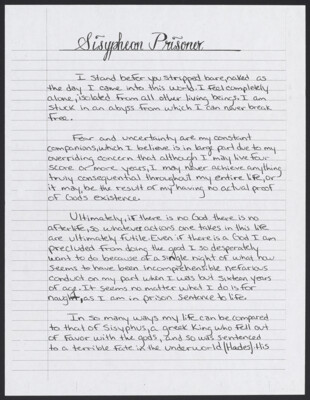 Sisyphean Prisoner
I stand before you stripped bare, naked as
the day I came into this world. I feel completely
alone, isolated from all other living beings. I am
stuck in an abyss from which I can never break
free.
Fear and uncertainty are my constant
companions, which I believe is in large part due to my
overriding concern that although I may live four
score or more years, I may never achieve anything
truly consequential throughout my entire life, or
it may be the result of my having no actual proof
of God's existence.
Ultimately, if there is no God there is no
afterlife, so whatever actions one takes in this life
are ultimately futile. Even if there is a God I am
precluded from doing the good I so desperately
want to do because of a single night of what now
seems to have been incomprehensible nefarious
conduct on my part when I was but sixteen years
of age. It seems no matter what I do is for
naught, as I am in prison sentence to life.
In so many ways my life can be compared
to that of Sisyphus, a greek King who fell out
of favor with the gods, and so was sentenced
to a terrible fate in the underworld (Hades). His